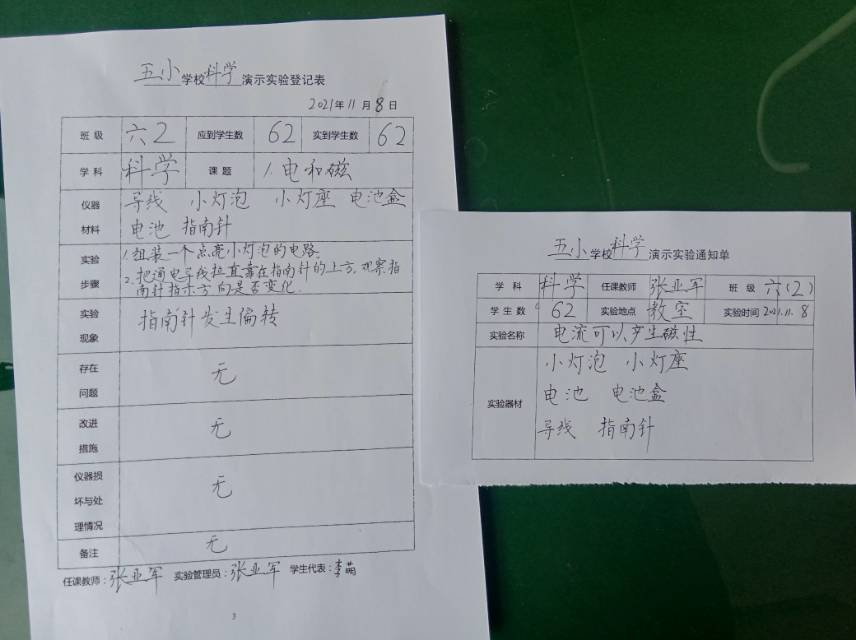 五小学校科学演示实验登记表
2021年11月8日
班级 六2 应到学生数 62 实到学生数 62
学科 科学 课题 1.电和磁
仪器材料 导线 小灯泡 小灯座 电池盒
电池 指南针
实验步骤 1.组装一个点亮小灯泡的电路.
2.把通电导线拉直靠在指南针的上方,观察指
南针指示方向是否变化.
实验现象 指南针发生偏转
存在问题 无
改进措施 无
仪器损坏与处理情况 无
备注 无
任课教师:张业军 实验管理员:张业军 学生代表:李萌
3
五小学校科学演示实验通知单
学科 科学 任课教师 张业军 班级 六(2)
学生数 62 实验地点 教室 实验时间 2021.11.8
实验名称 电流可以产生磁性
实验器材 小灯泡 小灯座
电池 电池盒
导线 指南针